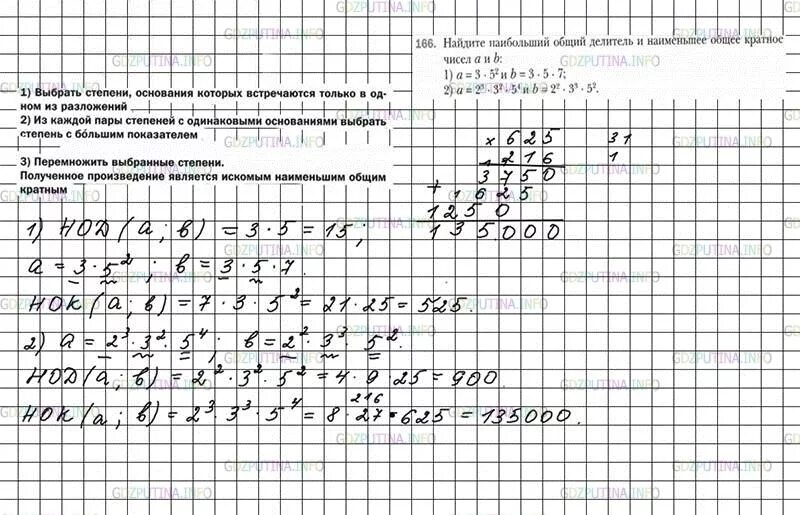 166. Найдите наибольший общий делитель и наименьшее общее кратное
чисел a и b:
1) a = 3 · 5² и b = 3 · 5 · 7;
2) a = 2³ · 3² · 5⁴ и b = 2² · 3³ · 5².
1) Выбрать степени, основания которых встречаются только в од-
ном из разложений
2) Из каждой пары степеней с одинаковыми основаниями выбрать
степень с бо́льшим показателем
3) Перемножить выбранные степени.
Полученное произведение является искомым наименьшим общим
кратным
× 625 31
216 1
3750
+ 1625
1250
135.000
1) НОД (а ; в) = 3 · 5 = 15 ;
а = 3 · 5² ; в = 3 · 5 · 7.
НОК (а ; в) = 7 · 3 · 5² = 21 · 25 = 525.
2) а = 2³ · 3² · 5⁴ ; в = 2² · 3³ · 5².
НОД (а ; в) = 2² · 3² · 5² = 4 · 9 · 25 = 900.
216
НОК (а ; в) = 2³ · 3³ · 5⁴ = 8 · 27 · 625 = 135000.
GDZPUTINA.INFO